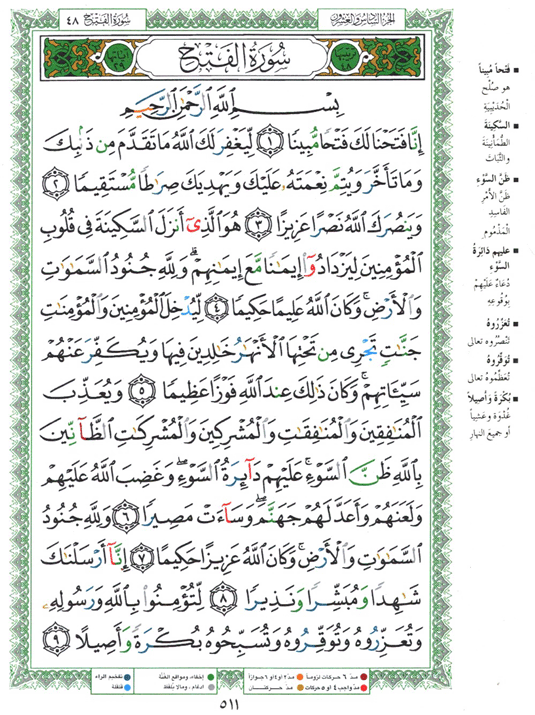 سُورَةُ الفَتْح ٤٨
الجزء السادس والعشرون
سُورَةُ الفَتْحِ
بِسْمِ اللَّهِ الرَّحْمَٰنِ الرَّحِيمِ
إِنَّا فَتَحْنَا لَكَ فَتْحًا مُّبِينًا ﴿١﴾ لِّيَغْفِرَ لَكَ اللَّهُ مَا تَقَدَّمَ مِن ذَنۢبِكَ
وَمَا تَأَخَّرَ وَيُتِمَّ نِعْمَتَهُۥ عَلَيْكَ وَيَهْدِيَكَ صِرَٰطًا مُّسْتَقِيمًا ﴿٢﴾
وَيَنصُرَكَ اللَّهُ نَصْرًا عَزِيزًا ﴿٣﴾ هُوَ الَّذِىٓ أَنزَلَ السَّكِينَةَ فِى قُلُوبِ
الْمُؤْمِنِينَ لِيَزْدَادُوٓا۟ إِيمَٰنًا مَّعَ إِيمَٰنِهِمْ ۗ وَلِلَّهِ جُنُودُ السَّمَٰوَٰتِ
وَالْأَرْضِ ۚ وَكَانَ اللَّهُ عَلِيمًا حَكِيمًا ﴿٤﴾ لِّيُدْخِلَ الْمُؤْمِنِينَ وَالْمُؤْمِنَٰتِ
جَنَّٰتٍ تَجْرِى مِن تَحْتِهَا الْأَنْهَٰرُ خَٰلِدِينَ فِيهَا وَيُكَفِّرَ عَنْهُمْ
سَيِّـَٔاتِهِمْ ۚ وَكَانَ ذَٰلِكَ عِندَ اللَّهِ فَوْزًا عَظِيمًا ﴿٥﴾ وَيُعَذِّبَ
الْمُنَٰفِقِينَ وَالْمُنَٰفِقَٰتِ وَالْمُشْرِكِينَ وَالْمُشْرِكَٰتِ الظَّآنِّينَ
بِاللَّهِ ظَنَّ السَّوْءِ ۚ عَلَيْهِمْ دَآئِرَةُ السَّوْءِ ۖ وَغَضِبَ اللَّهُ عَلَيْهِمْ
وَلَعَنَهُمْ وَأَعَدَّ لَهُمْ جَهَنَّمَ ۖ وَسَآءَتْ مَصِيرًا ﴿٦﴾ وَلِلَّهِ جُنُودُ
السَّمَٰوَٰتِ وَالْأَرْضِ ۚ وَكَانَ اللَّهُ عَزِيزًا حَكِيمًا ﴿٧﴾ إِنَّآ أَرْسَلْنَٰكَ
شَٰهِدًا وَمُبَشِّرًا وَنَذِيرًا ﴿٨﴾ لِّتُؤْمِنُوا۟ بِاللَّهِ وَرَسُولِهِۦ
وَتُعَزِّرُوهُ وَتُوَقِّرُوهُ وَتُسَبِّحُوهُ بُكْرَةً وَأَصِيلًا ﴿٩﴾
■ فَتْحاً مُبِيناً
هو صُلْح
الْحُدَيْبِيَة
■ السَّكِينَةَ
الطُّمَأْنِينَةَ
والثَّبَاتَ
■ ظَنَّ السَّوْءِ
ظَنَّ الأَمْرِ
الفَاسِدِ
الْمَذْمُومِ
■ عليهم دَائِرَةُ
السَّوْءِ
دُعَاءٌ عَلَيْهِمْ
بِوُقُوعِهِ
■ تُعَزِّرُوهُ
تَنْصُرُوه تعالى
■ تُوَقِّرُوهُ
تُعَظِّمُوهُ تعالى
■ بُكْرَةً وَأَصِيلاً
غُدْوَةً وعَشِيّاً
أو جميعَ النهار
مدّ ٦ حركات لزوماً
مدّ ٢ أو ٤ أو ٦ جوازاً
إخفاء، ومواقع الغُنَّة
تفخيم الراء
مدّ واجب ٤ أو ٥ حركات
مدّ حركتان
ادغام، وما لا يُلفَظ
قلقلة
٥١١